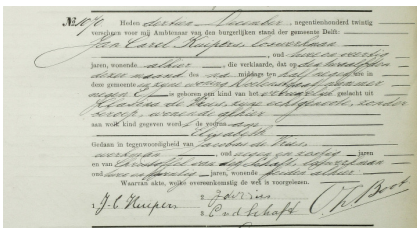 No. 1070 Heden dertien December, negentienhonderd twintig
verscheen voor mij Ambtenaar van den burgerlijken stand der gemeente Delft:
Jan Carel Kuipers, loswerkman
oud twee en veertig
jaren, wonende alhier, die verklaarde, dat op den
dezer maand, des na middags ten half negen ure in
deze gemeente in zijne woning
negen is geboren een kind van het vrouwelijk geslacht uit
de Vries, zijne echtgenoote, zonder
beroep, wonende alhier
aan welk kind gegeven werd de voornaam
Elisabeth
Gedaan in tegenwoordigheid van Jacobus de Vries,
werkman, oud jaren
en van Christoffel van der Schaft,
oud jaren, wonende beiden alhier
Waarvan akte, welke overeenkomstig de wet is voorgelezen.
1. J. C. Kuipers 2. J d Vries
3. C v d Schaft